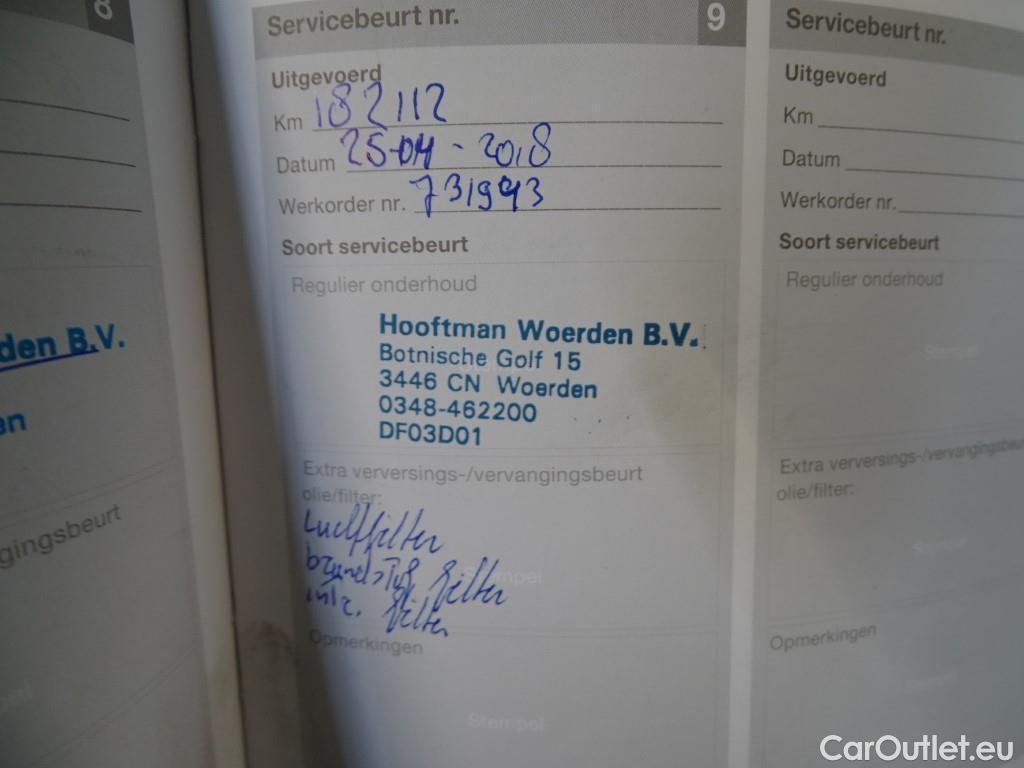 8
den B.V.
en
gingsbeurt
Servicebeurt nr. 9
Uitgevoerd
Km 182112
Datum 25-04-2018
Werkorder nr. 731993
Soort servicebeurt
Regulier onderhoud
Hooftman Woerden B.V.
Botnische Golf 15
Stempel
3446 CN Woerden
0348-462200
DF03D01
Extra verversings-/vervangingsbeurt
olie/filter:
Luchtfilter
brandstof filter
Stempel
filter
Opmerkingen
Stempel
Servicebeurt nr.
Uitgevoerd
Km
Datum
Werkorder nr.
Soort servicebeurt
Regulier onderhoud
Stempel
Extra verversings-/vervangingsbeu
olie/filter:
Stempel
Opmerkingen
Stempel
CarOutlet.eu